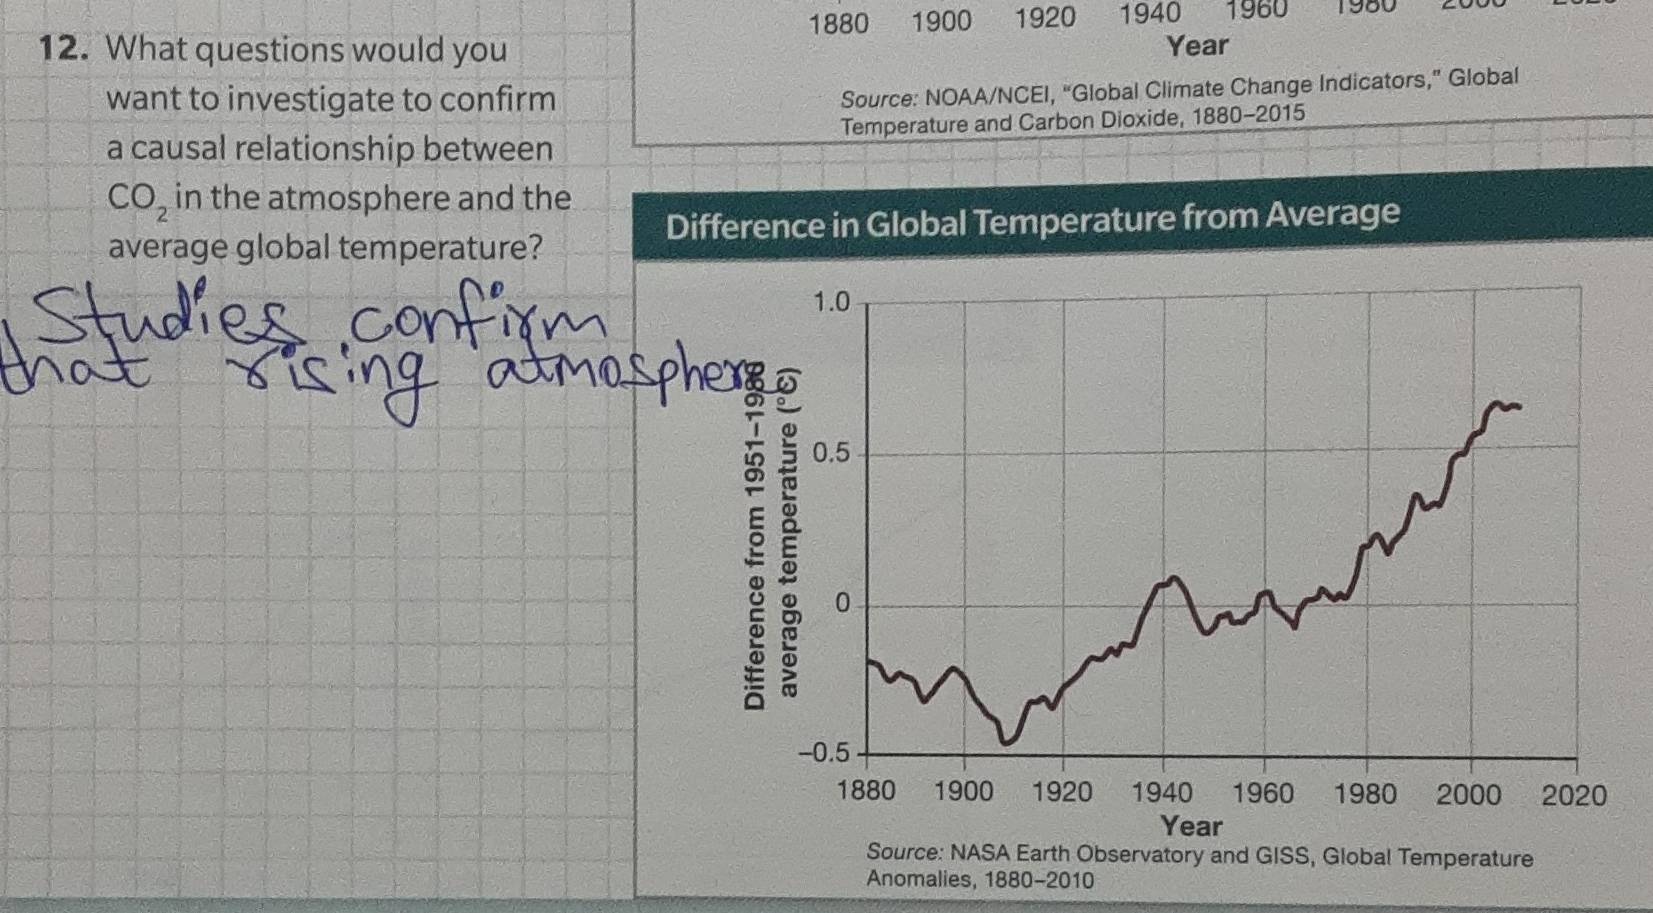 1880 1900 1920 1940 1960 1980 2000 2020
Year
Source: NOAA/NCEI, “Global Climate Change Indicators,” Global
Temperature and Carbon Dioxide, 1880–2015
12. What questions would you
want to investigate to confirm
a causal relationship between
CO₂ in the atmosphere and the
average global temperature?
Studies confirm
that rising atmosphere
Difference in Global Temperature from Average
Difference from 1951–1980
average temperature (°C)
1.0
0.5
0
–0.5
1880 1900 1920 1940 1960 1980 2000 2020
Year
Source: NASA Earth Observatory and GISS, Global Temperature
Anomalies, 1880–2010